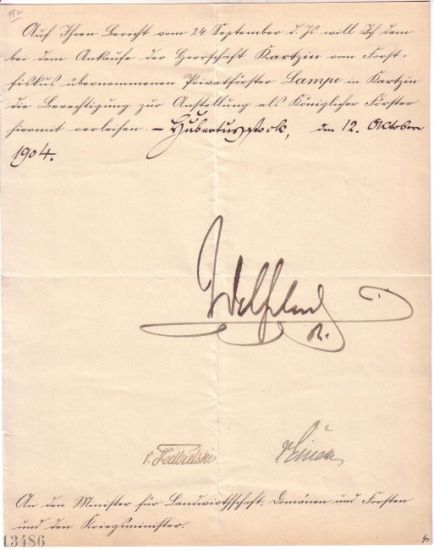 Auf Ihren Bericht vom 24 September d. Js will Ich dem
bei dem Ankaufe der Herrschaft Kartzin vom Forst-
fiskus übernommenen Privatförster Lampe in Kartzin
die Berechtigung zur Anstellung als Königlicher Förster
hiermit verleihen. – Hubertusstock, den 12. Oktober
1904.
Wilhelm
R.
v. Podbielski
v Einem
An den Minister für Landwirthschaft, Domänen und Forsten
und den Kriegsminister.
13486